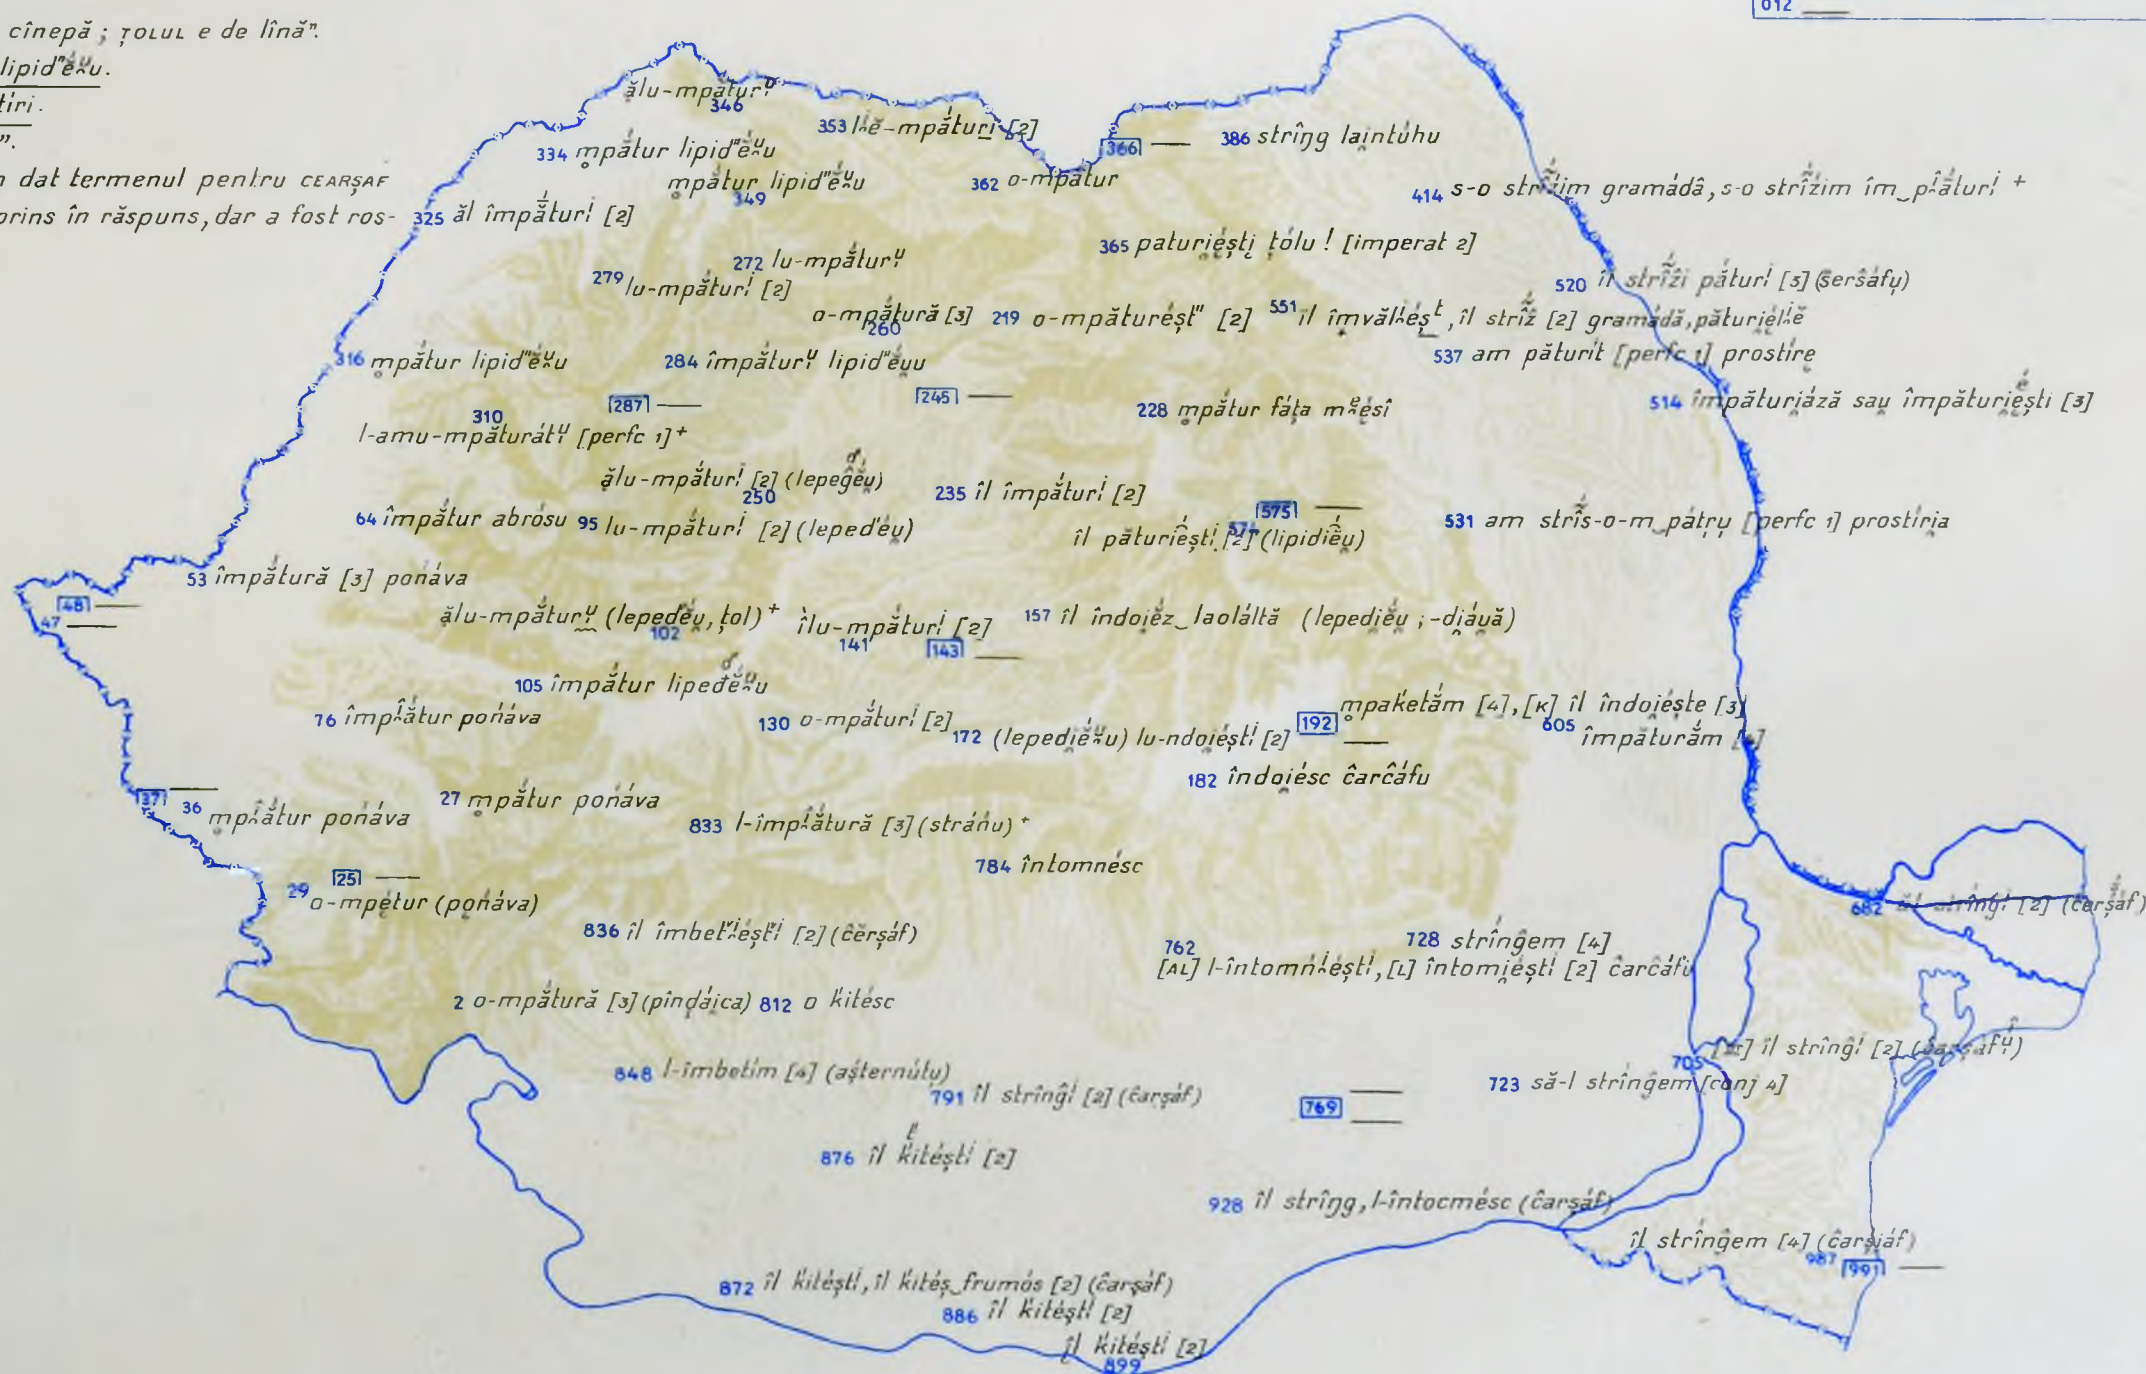 012 —
cînepă ; ȚOLUL e de lînă".
lipidʺéu̯.
tíri.
".
dat termenul pentru CEARȘAF
prins în răspuns, dar a fost ros-
ălu-mpắturu̯
346
353 -mpắturi [2]
366 —
386 strîŋg lai̯ntúhu
334 mpắtur lipidʺéu̯u
mpắtur lipidʺéu̯u
349
362 o-mpắtur
414 s-o strîźim grămádâ, s-o strîźim îm‿pắturi̯ +
325 ăl împắturi̯ [2]
365 paturi̯éști țólu ! [imperat 2]
272 lu-mpắturu̯
279 lu-mpắturi̯ [2]
520 îl strîži pắturi̯ [3] (šeršáfu)
o-mpắtură [3]
260
219 o-mpăturéștʺ [2]
551 îl îmvălʹéșt, îl strîž [2] grămádă, pături̯élʹĕ
316 mpắtur lipidʺéu̯u
284 împắturu̯ lipidʺéu̯u
537 am păturít [perfc 1] prostíre
287 —
245 —
228 mpắtur fáța mésî
514 împături̯áză sau̯ împături̯éști [3]
310
l-amu-mpăturátu̯ [perfc 1] +
ălu-mpắturi̯ [2] (lepeĝéu̯)
250
235 îl împắturi̯ [2]
64 împắtur abrósu
95 lu-mpắturi̯ [2] (lepedʹéu̯)
575 —
îl pături̯éști̯ [2] (lipidi̯éu̯)
531 am strîs-o-m‿pátru [perfc 1] prostíri̯a
53 împắtură [3] pońáva
48 —
47 —
ălu-mpắturu̯ (lepedéu̯, țol) +
102
îlu-mpắturi̯ [2]
141
143 —
157 îl îndoi̯éz‿laoláltă (lepedi̯éu̯ ; -di̯áu̯ă)
105 împắtur lipedʹéu̯u
76 împắtur pońáva
130 o-mpắturi̯ [2]
172 (lepedi̯éu̯u) lu-ndoi̯éști̯ [2]
192 —
mpaketắm [4], [K] îl îndoi̯éște [3]
605 împăturắm
182 îndoi̯ésc ĉarĉáfu
37 —
36 mpắtur pońáva
27 mpắtur pońáva
833 l-împắtură [3] (stráńu) +
784 întomnésc
25 —
29 o-mpétur (pońáva)
836 îl îmbetʹéștʹi̯ [2] (ĉerșáf)
682 ăl strînĝi̯ [2] (ĉerșáf)
762
[AL] l-întomńéști̯, [L] întomi̯éști̯ [2] ĉarĉáfu
728 strînĝem [4]
2 o-mpắtură [3] (pînḑái̯ca)
812 o kʹitésc
705 îl strînĝi̯ [2]
848 l-îmbetím [4] (așternútu)
791 îl strînĝi̯ [2] (ĉarșáf)
769 —
—
723 să-l strînĝem [conj 4]
876 îl kʹitéști̯ [2]
928 îl strîŋg, l-întocmésc (ĉarșáf)
îl strînĝem [4] (ĉarși̯áf)
987
991 —
872 îl kʹitéști̯, îl kʹitéș‿frumós [2] (ĉarșáf)
886 îl kʹitéști̯ [2]
îl kʹitéști̯ [2]
899